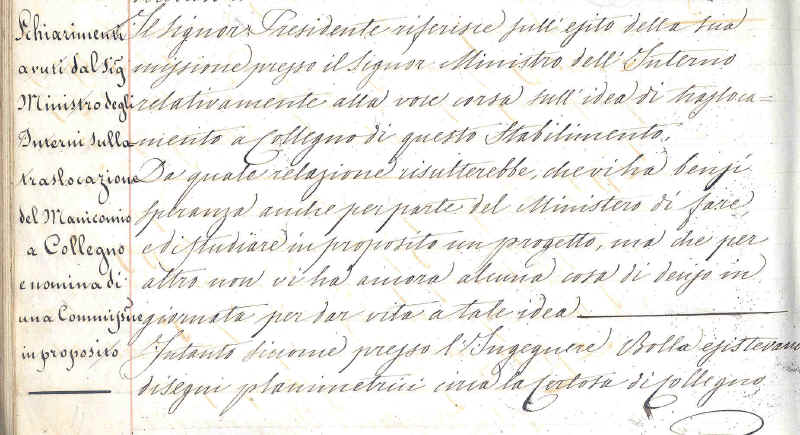 Schiarimenti
avuti dal Sig.
Ministro degli
Interni sulla
traslocazione
del Manicomio
a Collegno
e nomina di
una Commissne
in proposito
Il Signor Presidente riferisce sull'esito della sua
missione presso il Signor Ministro dell'Interno
relativamente alla voce corsa sull'idea di trasloca=
mento a Collegno di questo Stabilimento.
Da quale relazione risulterebbe, che vi ha bensì
speranza anche per parte del Ministero di fare,
e di studiare in proposito un progetto, ma che per
altro non vi ha ancora alcuna cosa di denso in
giornata per dar vita a tale idea
Intanto siccome presso l'Ingegnere Bolla esistevano
disegni planimetrici circa la Certosa di Collegno